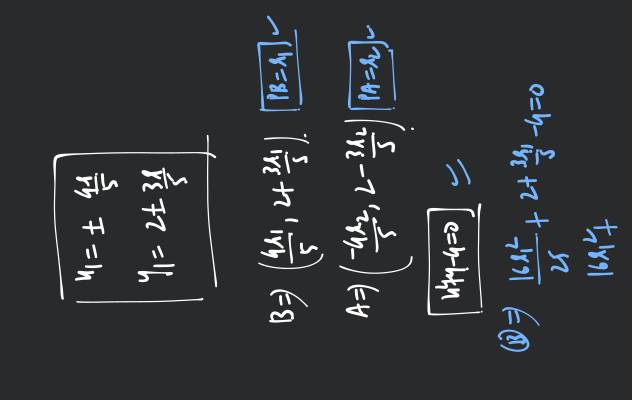 x₁ = ± 4r/5
y₁ = 2 ± 3r/5
B ⇒ (4r₁/5, 2+3r₁/5). PB=r₁ ✓
A ⇒ (-4r₂/5, 2-3r₂/5). PA=r₂ ✓
x²+y-4=0 =
(B) ⇒ 16r₁²/25 + 2 + 3r₁/5 - 4 = 0
16r₁² +